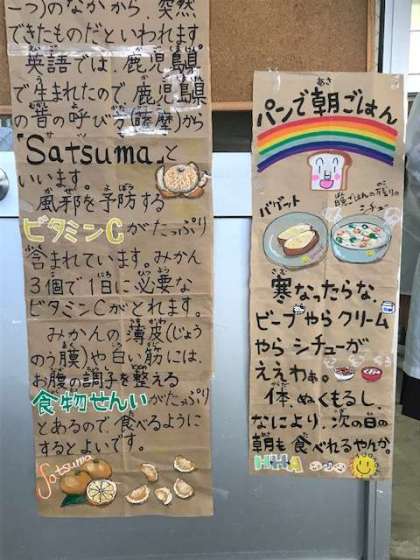 一つ)のなかから 突然
できたものだといわれます。
英語では、鹿児島県
で生まれたので、鹿児島県
の昔の呼び方(薩摩)から
「Satsuma」と
いいます。
風邪を予防する
ビタミンCがたっぷり
含まれています。みかん
3個で1日に必要な
ビタミンCがとれます。
みかんの薄皮(じょう
のう膜)や白い筋には、
お腹の調子を整える
食物せんいがたっぷり
とあるので、食べるように
するとよいです。
Satsuma
パンで朝ごはん
バゲット
晩ごはんの残りの
シチュー
寒なったらな、
ビーフやらクリーム
やらシチューが
ええわぁ。
体、ぬくもるし、
なにより、次の日の
朝も食べれるやんか。
HHA